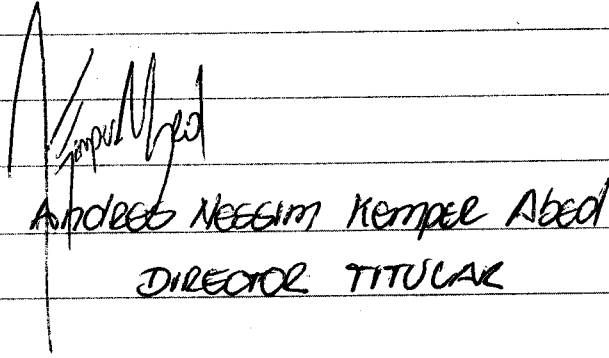 Andres Nessim Kemper Abed
DIRECTOR TITULAR